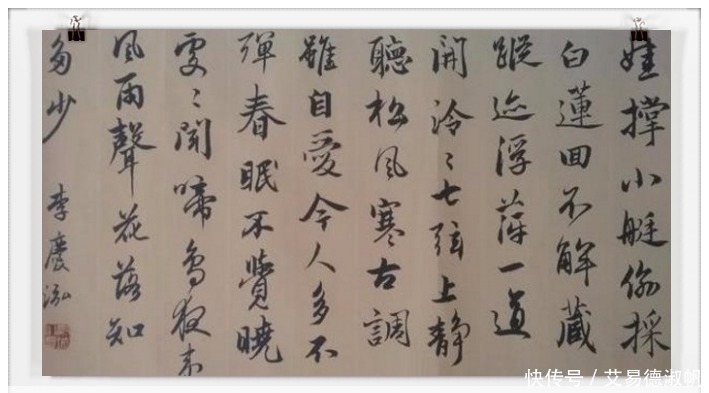 娃撑小艇偷採
白蓮回不解藏
蹤迹浮萍一道
開泠〻七弦上靜
聽松風寒古調
雖自愛今人多不
彈春眠不覺曉
處〻聞啼鳥夜来
風雨聲花落知
多少
李慶泓
快传号 / 艾易德淑帆